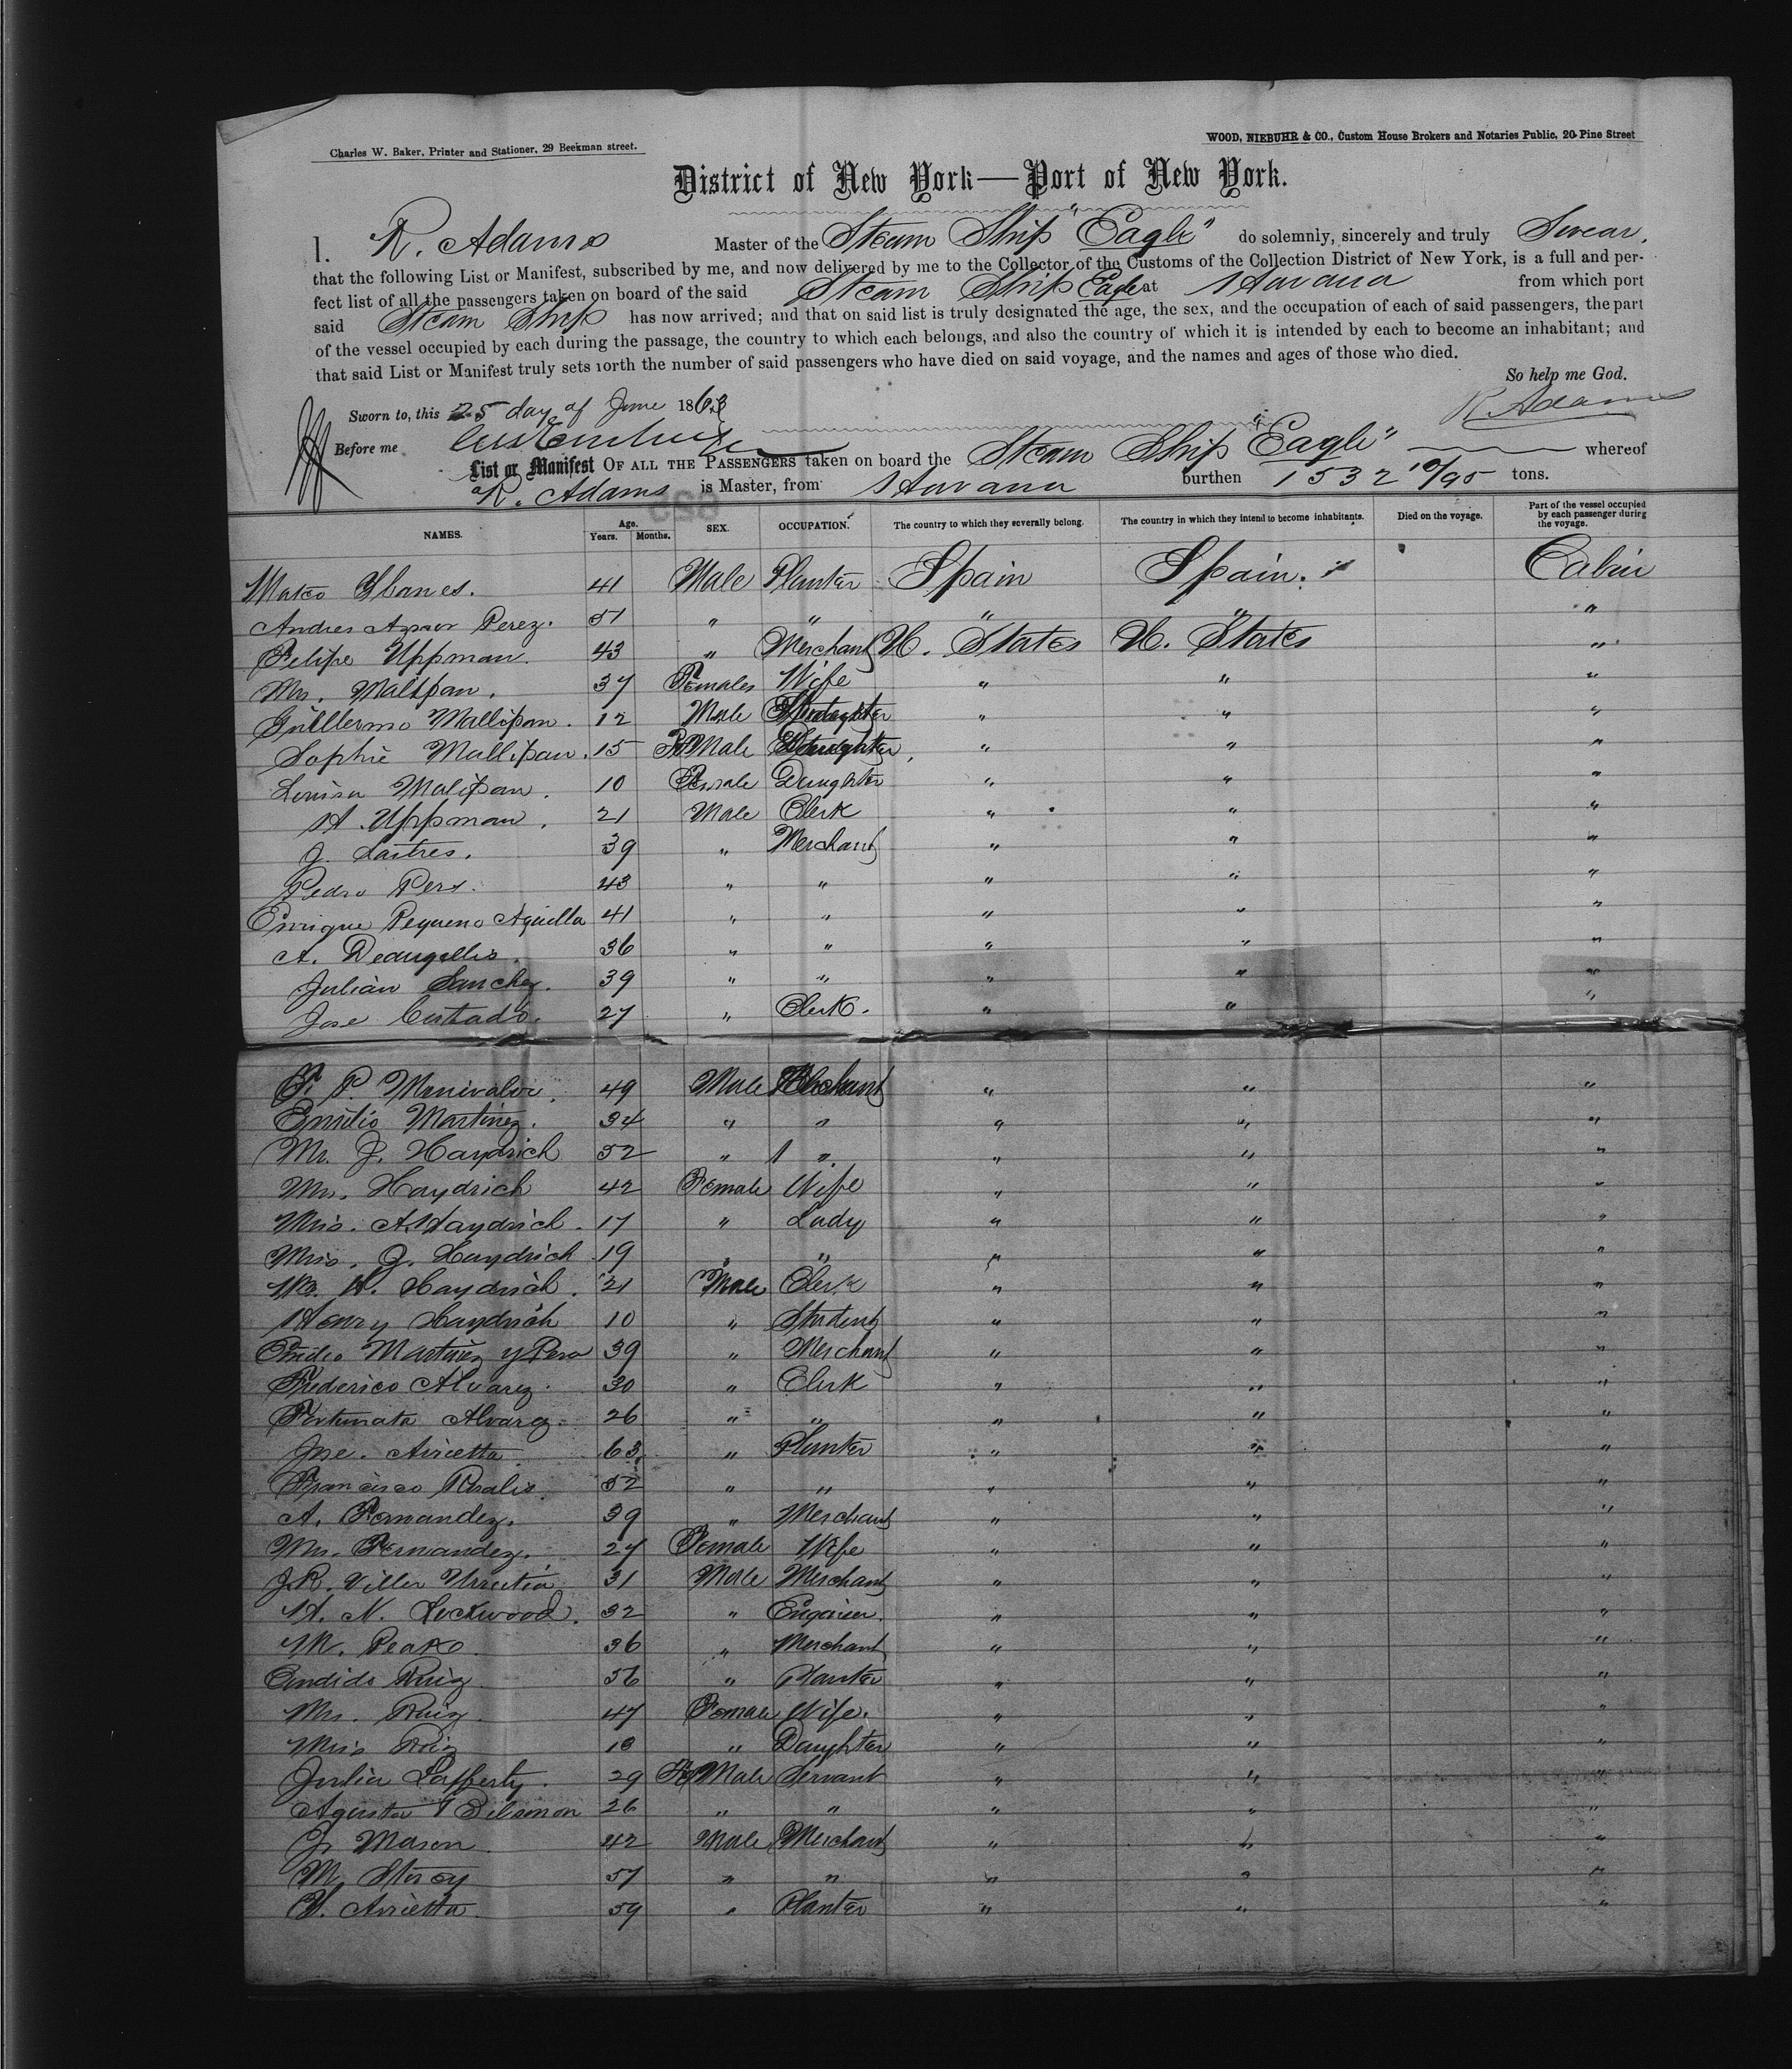 Charles W. Baker, Printer and Stationer, 29 Beekman street.
WOOD, NIEBUHR & CO., Custom House Brokers and Notaries Public, 20 Pine Street
District of New York—Port of New York.
I, R. Adams Master of the Steam Ship "Eagle" do solemnly, sincerely and truly Swear,
that the following List or Manifest, subscribed by me, and now delivered by me to the Collector of the Customs of the Collection District of New York, is a full and per-
fect list of all the passengers taken on board of the said Steam Ship Eagle at Havana from which port
said Steam Ship has now arrived; and that on said list is truly designated the age, the sex, and the occupation of each of said passengers, the part
of the vessel occupied by each during the passage, the country to which each belongs, and also the country of which it is intended by each to become an inhabitant; and
that said List or Manifest truly sets forth the number of said passengers who have died on said voyage, and the names and ages of those who died.
So help me God.
Sworn to, this 25 day of June 1863 R Adams
Before me
List or Manifest OF ALL THE PASSENGERS taken on board the Steam Ship "Eagle" whereof
R. Adams is Master, from Havana burthen 1532 10/95 tons.
NAMES. Age. Years. Months. SEX. OCCUPATION. The country to which they severally belong. The country in which they intend to become inhabitants. Died on the voyage. Part of the vessel occupied by each passenger during the voyage.
Mateo Ybanes. 41 Male Planter Spain Spain. Cabin
Andres Perez. 51 " " " " "
Felipe Uppman. 43 " Merchant U. States U. States "
Mrs. Malipan. 37 Females Wife " " "
Guillermo Mallipan. 12 Male " " "
Sophie Mallipan. 15 FeMale Daughter " " "
Louisa Malipan. 10 Female Daughter " " "
H. Uppman. 21 Male Clerk " " "
J. Sastres. 39 " Merchant " " "
Pedro Pers. 43 " " " " "
Enrique Pequeno Aguella 41 " " " " "
A. Deaugellis. 36 " " " " "
Julian Sanchez. 39 " " " " "
Jose Custado. 27 " Clerk. " " "
F. P. 49 Male Merchant " " "
Emilio Martinez. 34 " " " " "
Mr. J. Haydrich 52 " " " " "
Mrs. Haydrich 42 Female Wife " " "
Miss. A. Haydrich. 17 " Lady " " "
Miss. J. Haydrich 19 " " " " "
Mr. H. Haydrich. 21 Male Clerk " " "
Henry Haydrich 10 " Student " " "
Emilio Martinez y Pera 39 " Merchant " " "
Frederico Alvarez. 30 " Clerk " " "
Fortunata Alvarez. 26 " " " " "
Jose. Arrietta 63 " Planter " " "
Francisco Rosalis. 52 " " " " "
A. Fernandez. 39 " Merchant " " "
Mrs. Fernandez. 27 Female Wife " " "
J.R. Viller Urrutia 31 Male Merchant " " "
H. N. Lockwood. 32 " Engineer. " " "
M. Peake 36 " Merchant " " "
Candido Ruiz 56 " Planter " " "
Mrs. Ruiz. 47 Female Wife. " " "
Miss Ruiz 18 " Daughter " " "
Julia Lafferty. 29 FeMale Servant " " "
Agusta 26 " " " " "
J. Mason 42 Male Merchant " " "
M. Storey 57 " " " " "
Y. Arrietta. 59 " Planter " " "